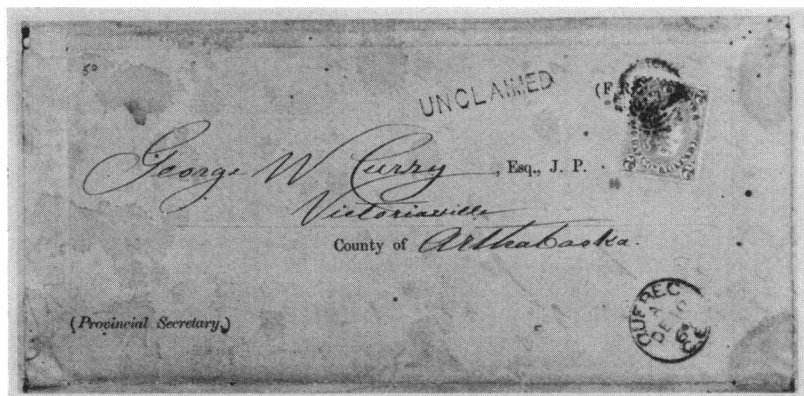 50
UNCLAIMED
(F.R.
George W Curry, Esq., J. P.
Victoriaville
County of Arthabaska.
(Provincial Secretary,)
QUEBEC
A
DE 10
6
C.E